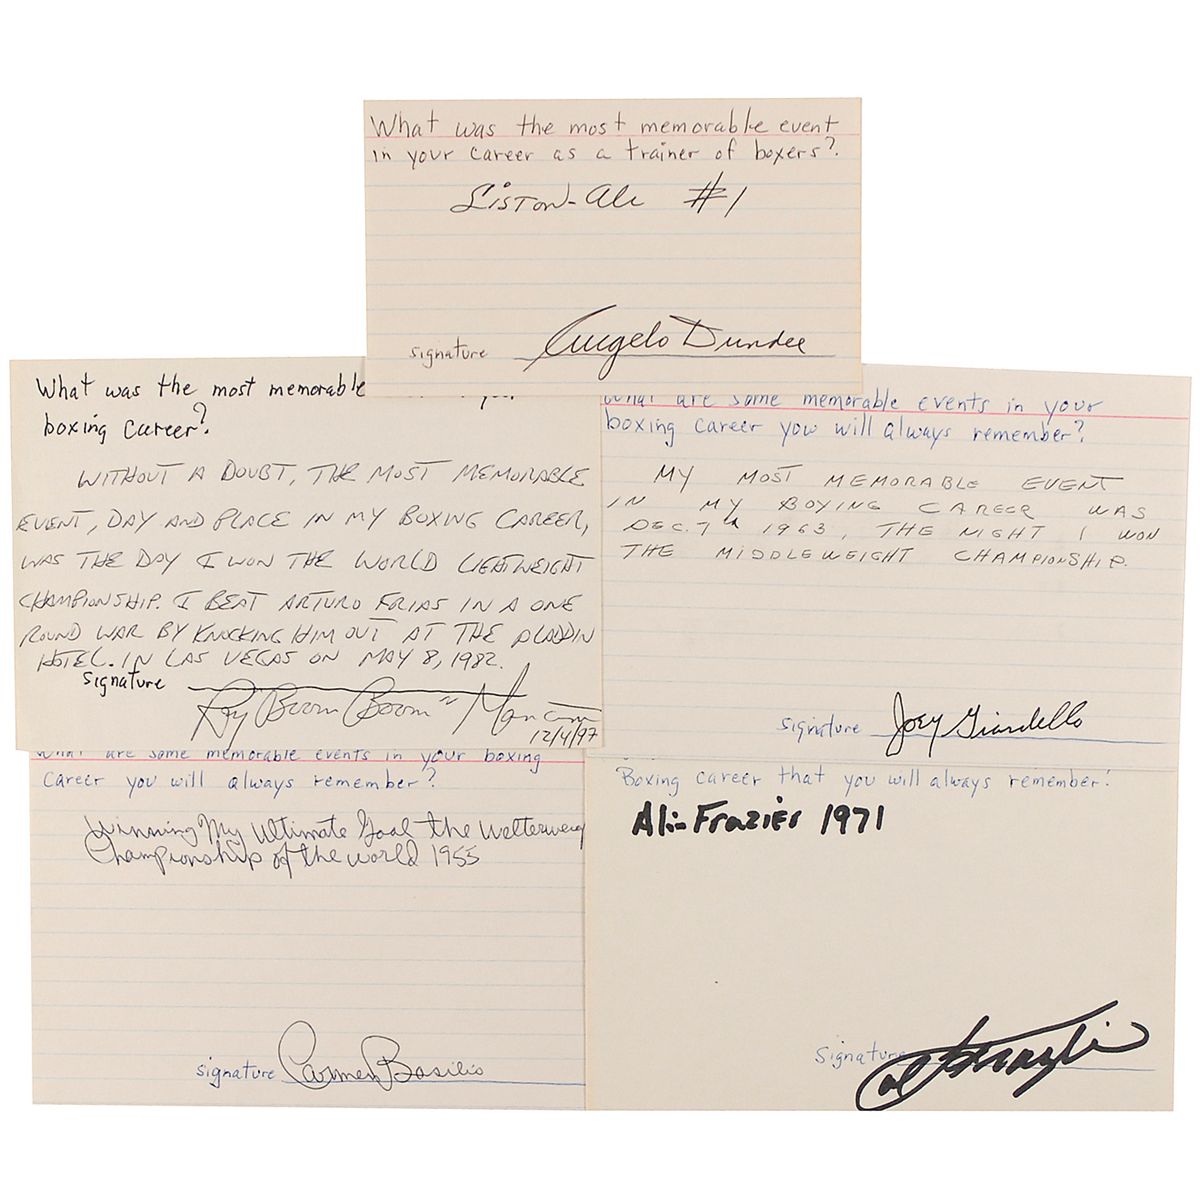 What was the most memorable event
in your career as a trainer of boxers?
Liston-Ali #1
signature Angelo Dundee
What was the most memorable
boxing career?
WITHOUT A DOUBT, THE MOST MEMORABLE
EVENT, DAY AND PLACE IN MY BOXING CAREER,
WAS THE DAY I WON THE WORLD LIGHTWEIGHT
CHAMPIONSHIP. I BEAT ARTURO FRIAS IN A ONE
ROUND WAR BY KNOCKING HIM OUT AT THE ALADDIN
HOTEL. IN LAS VEGAS ON MAY 8, 1982.
signature Ray "Boom Boom" Mancini
12/4/97
What are some memorable events in your
boxing career you will always remember?
MY MOST MEMORABLE EVENT
IN MY BOXING CAREER WAS
DEC. 7th 1963, THE NIGHT I WON
THE MIDDLEWEIGHT CHAMPIONSHIP.
signature Joey Giardello
What are some memorable events in your boxing
career you will always remember?
Winning My Ultimate Goal the Welterweig
Championship of the world 1955
signature Carmen Basilio
Boxing career that you will always remember?
Ali-Frazier 1971
signature